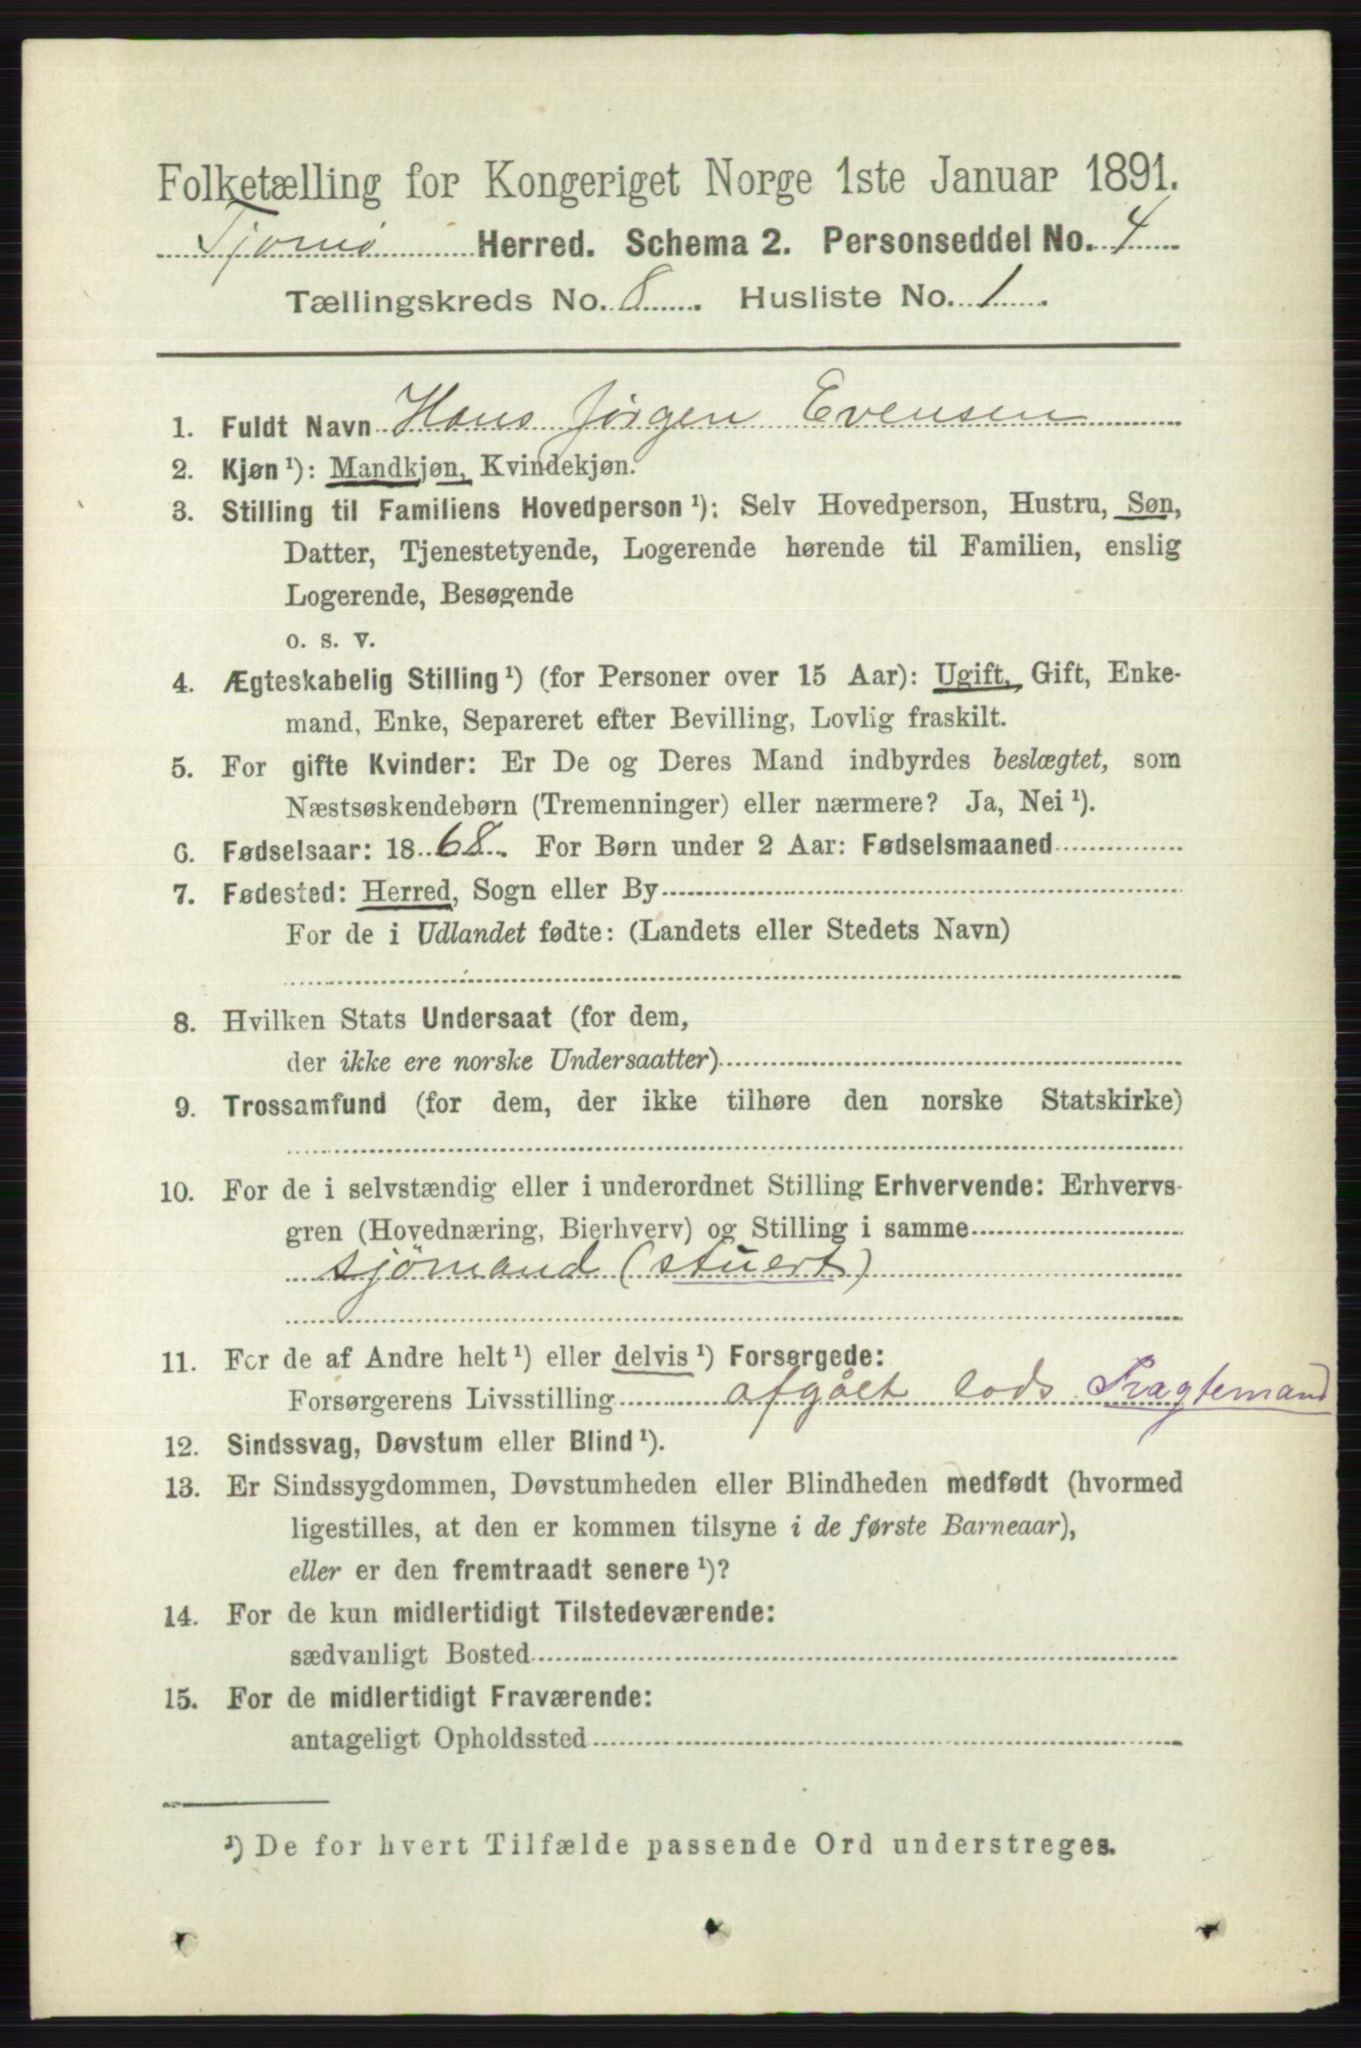 Folketælling for Kongeriget Norge 1ste Januar 1891.
Tjømø Herred. Schema 2. Personseddel No. 4
Tællingskreds No. 8. Husliste No. 1.
1. Fuldt Navn Hans Jørgen Evensen
2. Kjøn ¹): Mandkjøn, Kvindekjøn.
3. Stilling til Familiens Hovedperson ¹): Selv Hovedperson, Hustru, Søn,
Datter, Tjenestetyende, Logerende hørende til Familien, enslig
Logerende, Besøgende
o. s. v.
4. Ægteskabelig Stilling ¹) (for Personer over 15 Aar): Ugift, Gift, Enke-
mand, Enke, Separeret efter Bevilling, Lovlig fraskilt.
5. For gifte Kvinder: Er De og Deres Mand indbyrdes beslægtet, som
Næstsøskendebørn (Tremenninger) eller nærmere? Ja, Nei ¹).
6. Fødselsaar: 1868. For Børn under 2 Aar: Fødselsmaaned
7. Fødested: Herred, Sogn eller By
For de i Udlandet fødte: (Landets eller Stedets Navn)
8. Hvilken Stats Undersaat (for dem,
der ikke ere norske Undersaatter)
9. Trossamfund (for dem, der ikke tilhøre den norske Statskirke)
10. For de i selvstændig eller i underordnet Stilling Erhvervende: Erhvervs-
gren (Hovednæring, Bierhverv) og Stilling i samme
sjømand (stuert)
11. For de af Andre helt ¹) eller delvis ¹) Forsørgede:
Forsørgerens Livsstilling afgået lods Fragtemand
12. Sindssvag, Døvstum eller Blind ¹).
13. Er Sindssygdommen, Døvstumheden eller Blindheden medfødt (hvormed
ligestilles, at den er kommen tilsyne i de første Barneaar),
eller er den fremtraadt senere ¹)?
14. For de kun midlertidigt Tilstedeværende:
sædvanligt Bosted
15. For de midlertidigt Fraværende:
antageligt Opholdssted
¹) De for hvert Tilfælde passende Ord understreges.